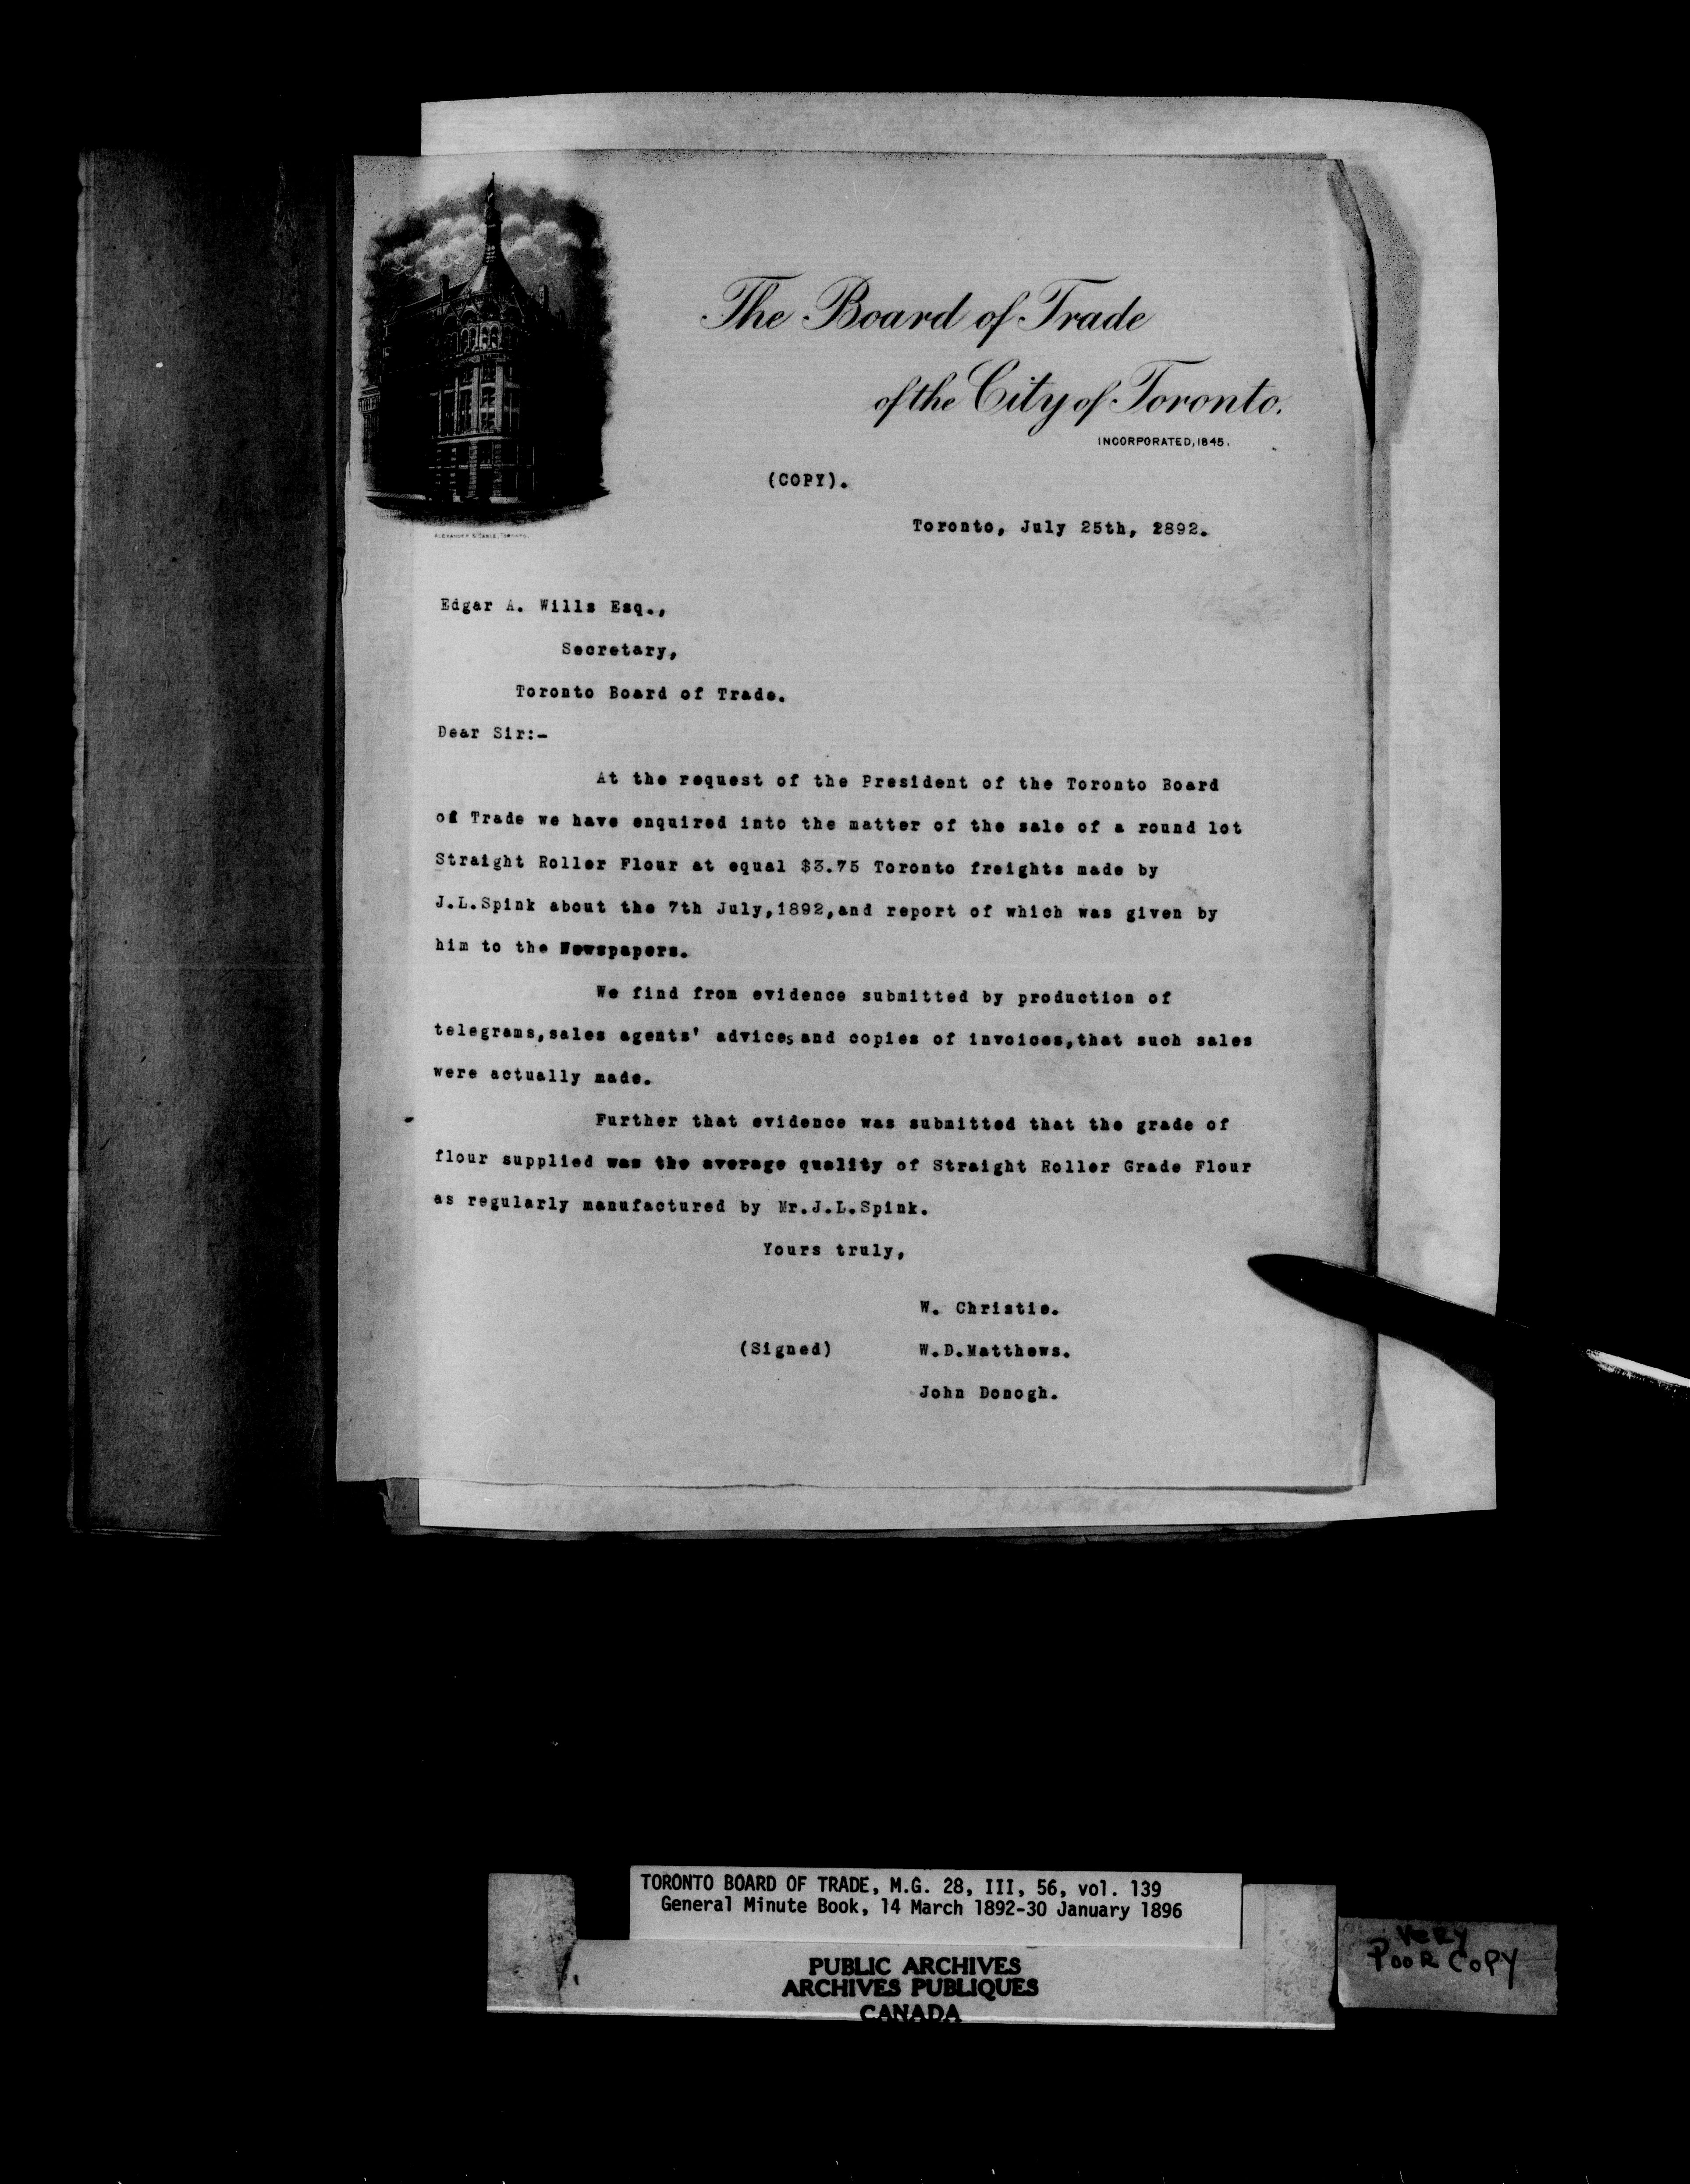 The Board of Trade
of the City of Toronto.
INCORPORATED, 1845.
ALEXANDER & CABLE, TORONTO.
(COPY).
Toronto, July 25th, 2892.
Edgar A. Wills Esq.,
Secretary,
Toronto Board of Trade.
Dear Sir:-
At the request of the President of the Toronto Board
of Trade we have enquired into the matter of the sale of a round lot
Straight Roller Flour at equal $3.75 Toronto freights made by
J.L.Spink about the 7th July,1892,and report of which was given by
him to the Newspapers.
We find from evidence submitted by production of
telegrams,sales agents' advices and copies of invoices,that such sales
were actually made.
Further that evidence was submitted that the grade of
flour supplied was the average quality of Straight Roller Grade Flour
as regularly manufactured by Mr.J.L.Spink.
Yours truly,
W. Christie.
(Signed) W.D.Matthews.
John Donogh.
TORONTO BOARD OF TRADE, M.G. 28, III, 56, vol. 139
General Minute Book, 14 March 1892-30 January 1896
PUBLIC ARCHIVES
ARCHIVES PUBLIQUES
CANADA
VERY
POOR COPY